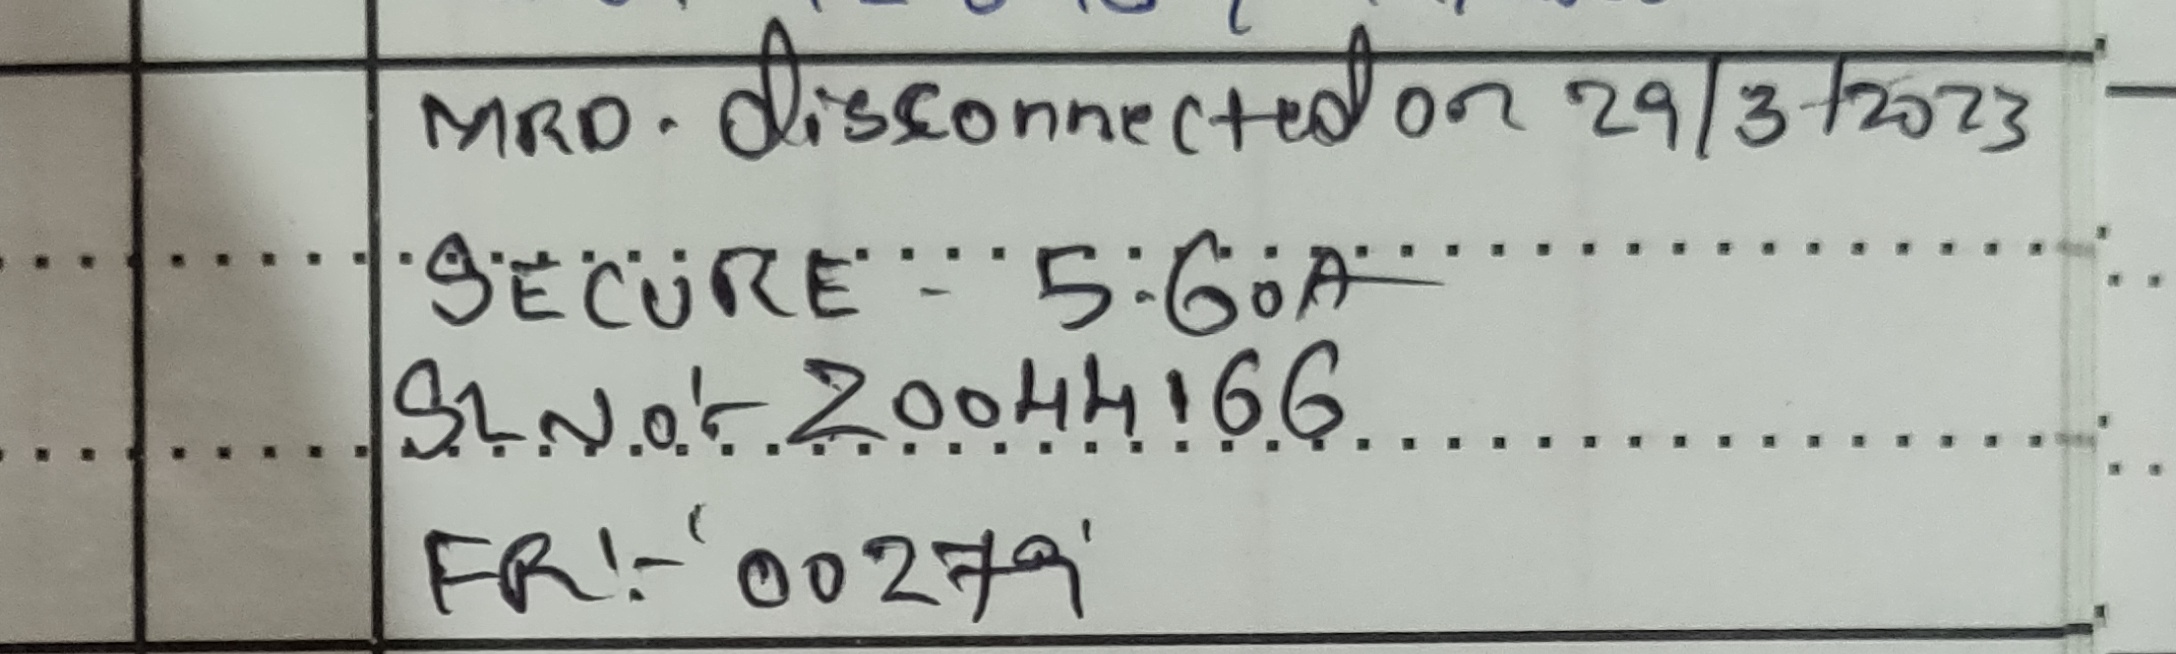 MRD. disconnected on 29/3/2023
SECURE - 5.60A
SLNo:- 20044166
FR:- '00279'